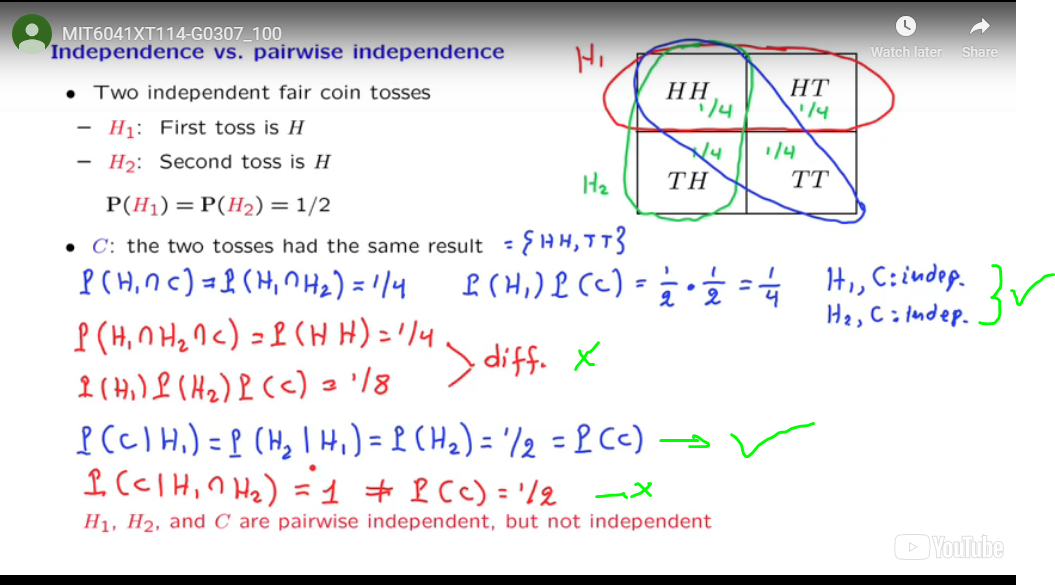 MIT6041XT114-G0307_100
Watch later
Share
Independence vs. pairwise independence
• Two independent fair coin tosses
– H₁: First toss is H
– H₂: Second toss is H
P(H₁) = P(H₂) = 1/2
H₁
HH 1/4
HT 1/4
H₂
1/4 TH
1/4 TT
• C: the two tosses had the same result = {HH, TT}
P(H₁∩C) = P(H₁∩H₂) = 1/4 P(H₁) P(C) = 1/2 • 1/2 = 1/4 H₁, C: indep.
H₂, C: indep. } ✓
P(H₁∩H₂∩C) = P(HH) = 1/4
> diff. ×
P(H₁) P(H₂) P(C) = 1/8
P(C|H₁) = P(H₂|H₁) = P(H₂) = 1/2 = P(C) → ✓
P(C|H₁∩H₂) = 1 ≠ P(C) = 1/2 → ×
H₁, H₂, and C are pairwise independent, but not independent
YouTube